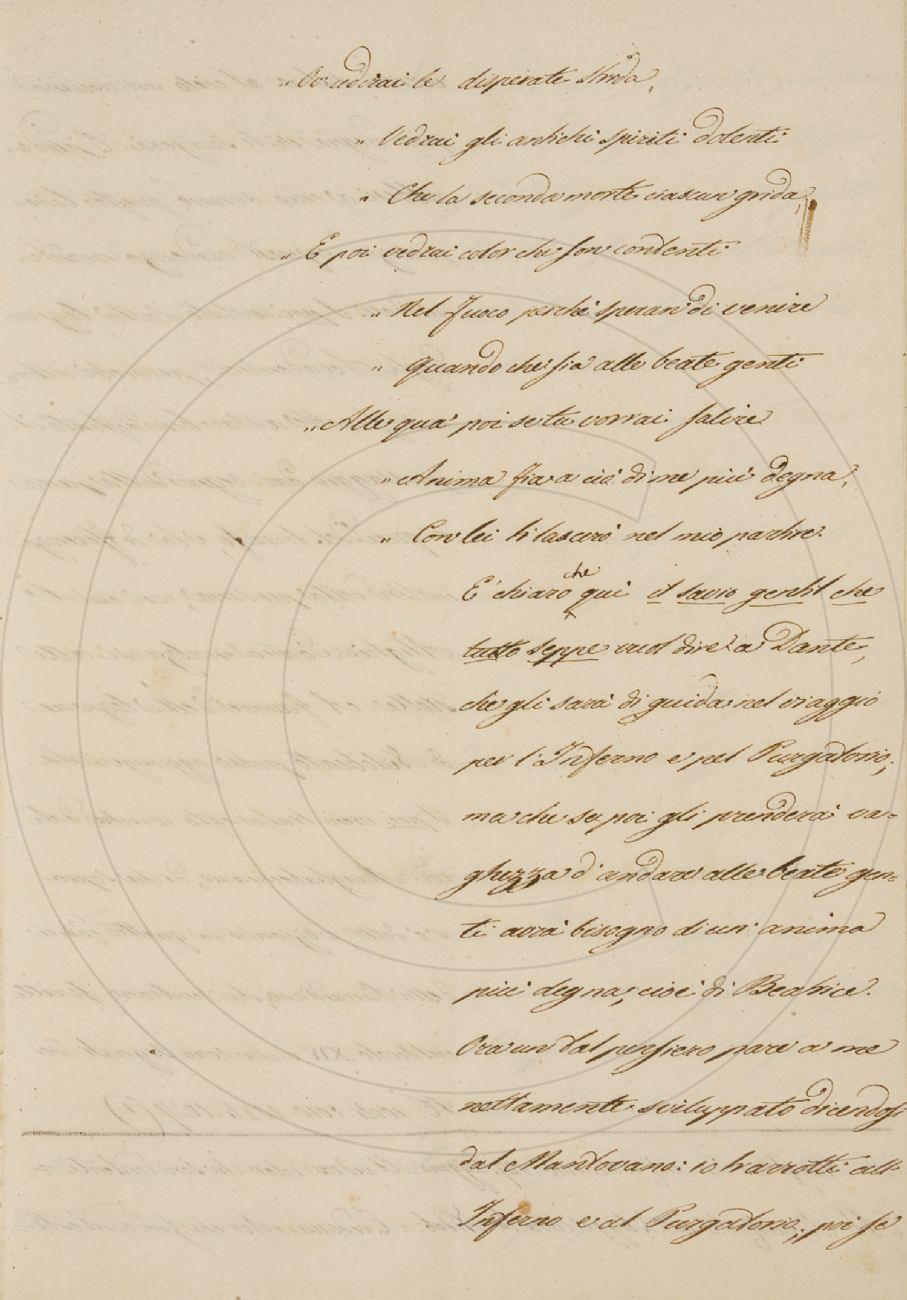 „ Ov' udirai le disperate strida,
„ Vedrai gli antichi spiriti dolenti
„ Che la seconda morte ciascun grida,
„ E poi vedrai color che son contenti
„ Nel fuoco perchè speran di venire
„ Quando che sia alle beate genti
„ Alle qua' poi se tu vorrai salire
„ Anima fia a ciò di me più degna,
„ Con lei ti lascerò nel mio partire.
E' chiaro che qui il savio gentil che
tutto seppe vuol dire a Dante,
che gli sarà di guida nel viaggio
per l'Inferno e pel Purgatorio;
ma che se poi gli prenderà va=
ghezza d'andare alle beate gen=
ti avrà bisogno di un' anima
più degna, cioè di Beatrice.
Ora un tal pensiero pare a me
nettamente sviluppato dicendosi
dal Mantovano: io trarrotti all'
Inferno e al Purgatorio, poi se